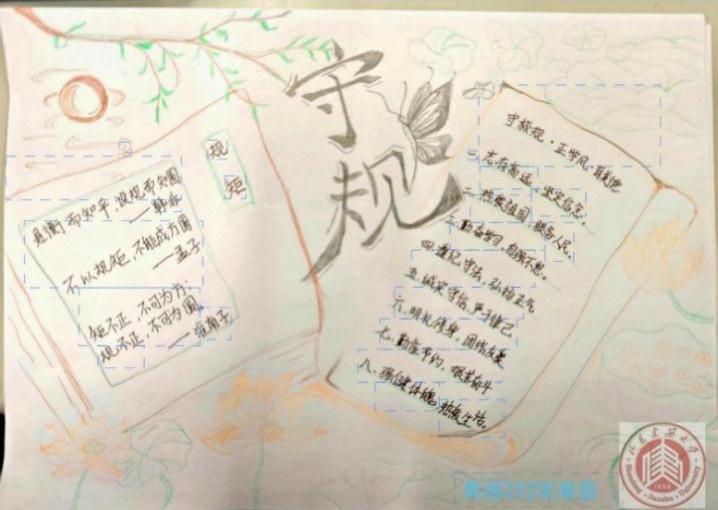 守规
规
矩
县衡而知平,设规而知圆
——韩非
不以规矩,不能成方圆
——孟子
矩不正,不可为方;
规不正,不可为圆
——淮南子
守校规·正学风·
一、志存高远,坚定信念。
二、热爱祖国,服务人民。
三、勤奋学习,自强不息。
四、遵纪守法,弘扬正气
五、诚实守信,严于律己
六、明礼修身,团结友爱
七、勤俭节约,艰苦奋斗
八、强健体魄,热爱生活。
山东建筑大学
Shandong Jianzhu University